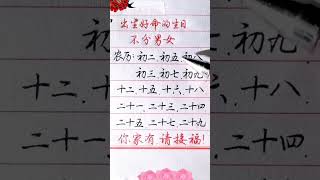 出生好命的生日
不分男女
农历:初二、初五、初八
初三、初七、初九
十二、十五、十六、十八
二十一、二十三、二十四
二十五、二十七、二十九
你家有,请接福!